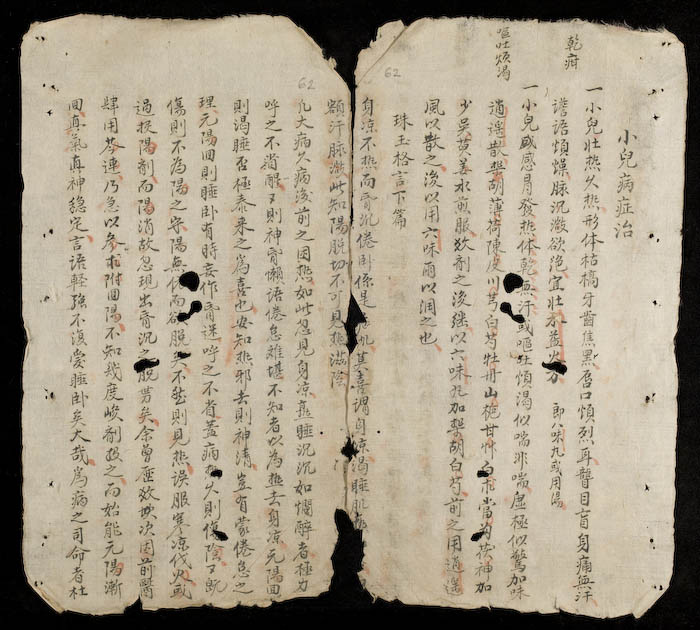 62
小兒病症治
一小兒壯热久热形体枯槁牙齒焦黑唇口煩烈耳聾目盲身痛無汗
乾疳
譫语煩燥脉沉澈欲绝宜壮水益火方 即八味丸或用湯
一小兒感冒發热体乾無汗或嘔吐煩渴似喘非喘虚極似驚加味
嘔吐煩渴
逍遥散柴胡薄荷陳皮川芎白芍牡丹山梔甘艸白朮當归茯神加
少吴茰姜水煎服数劑之後继以六味丸加柴胡白芍前之用逍遥
風以散之後以用六味雨以潤之也
珠玉格言下篇
身凉不热而昏沉倦卧係是其喜謂身凉渴睡肌
62
額汗脉澈此知陽脱切不可見热滋陰
凡大病久病後前之因热如此忽见身凉靠睡沉沉如爛醉者極力
呼之不省醒又則神昏懒语倦怠难堪不知者以為热去身凉元陽回
則渴睡否極泰来之為喜也安知热邪去则神清豈有蒙倦怠之
理元陽回則睡卧有時安作昏迷呼之不省盖病热久則傷陰又既
傷則不為陽之守陽無依而欲脱矣不然則見热误服寒凉伐火或
過投陽劑而陽消故忽现出昏沉之脱势矣余曾歷效数次因前醫
肆用芩連乃急以參朮附回陽不知幾度峻劑投之而始能元陽漸
回真氣真神穏定言语輕强不復爱睡卧矣大哉為病之司命者杜